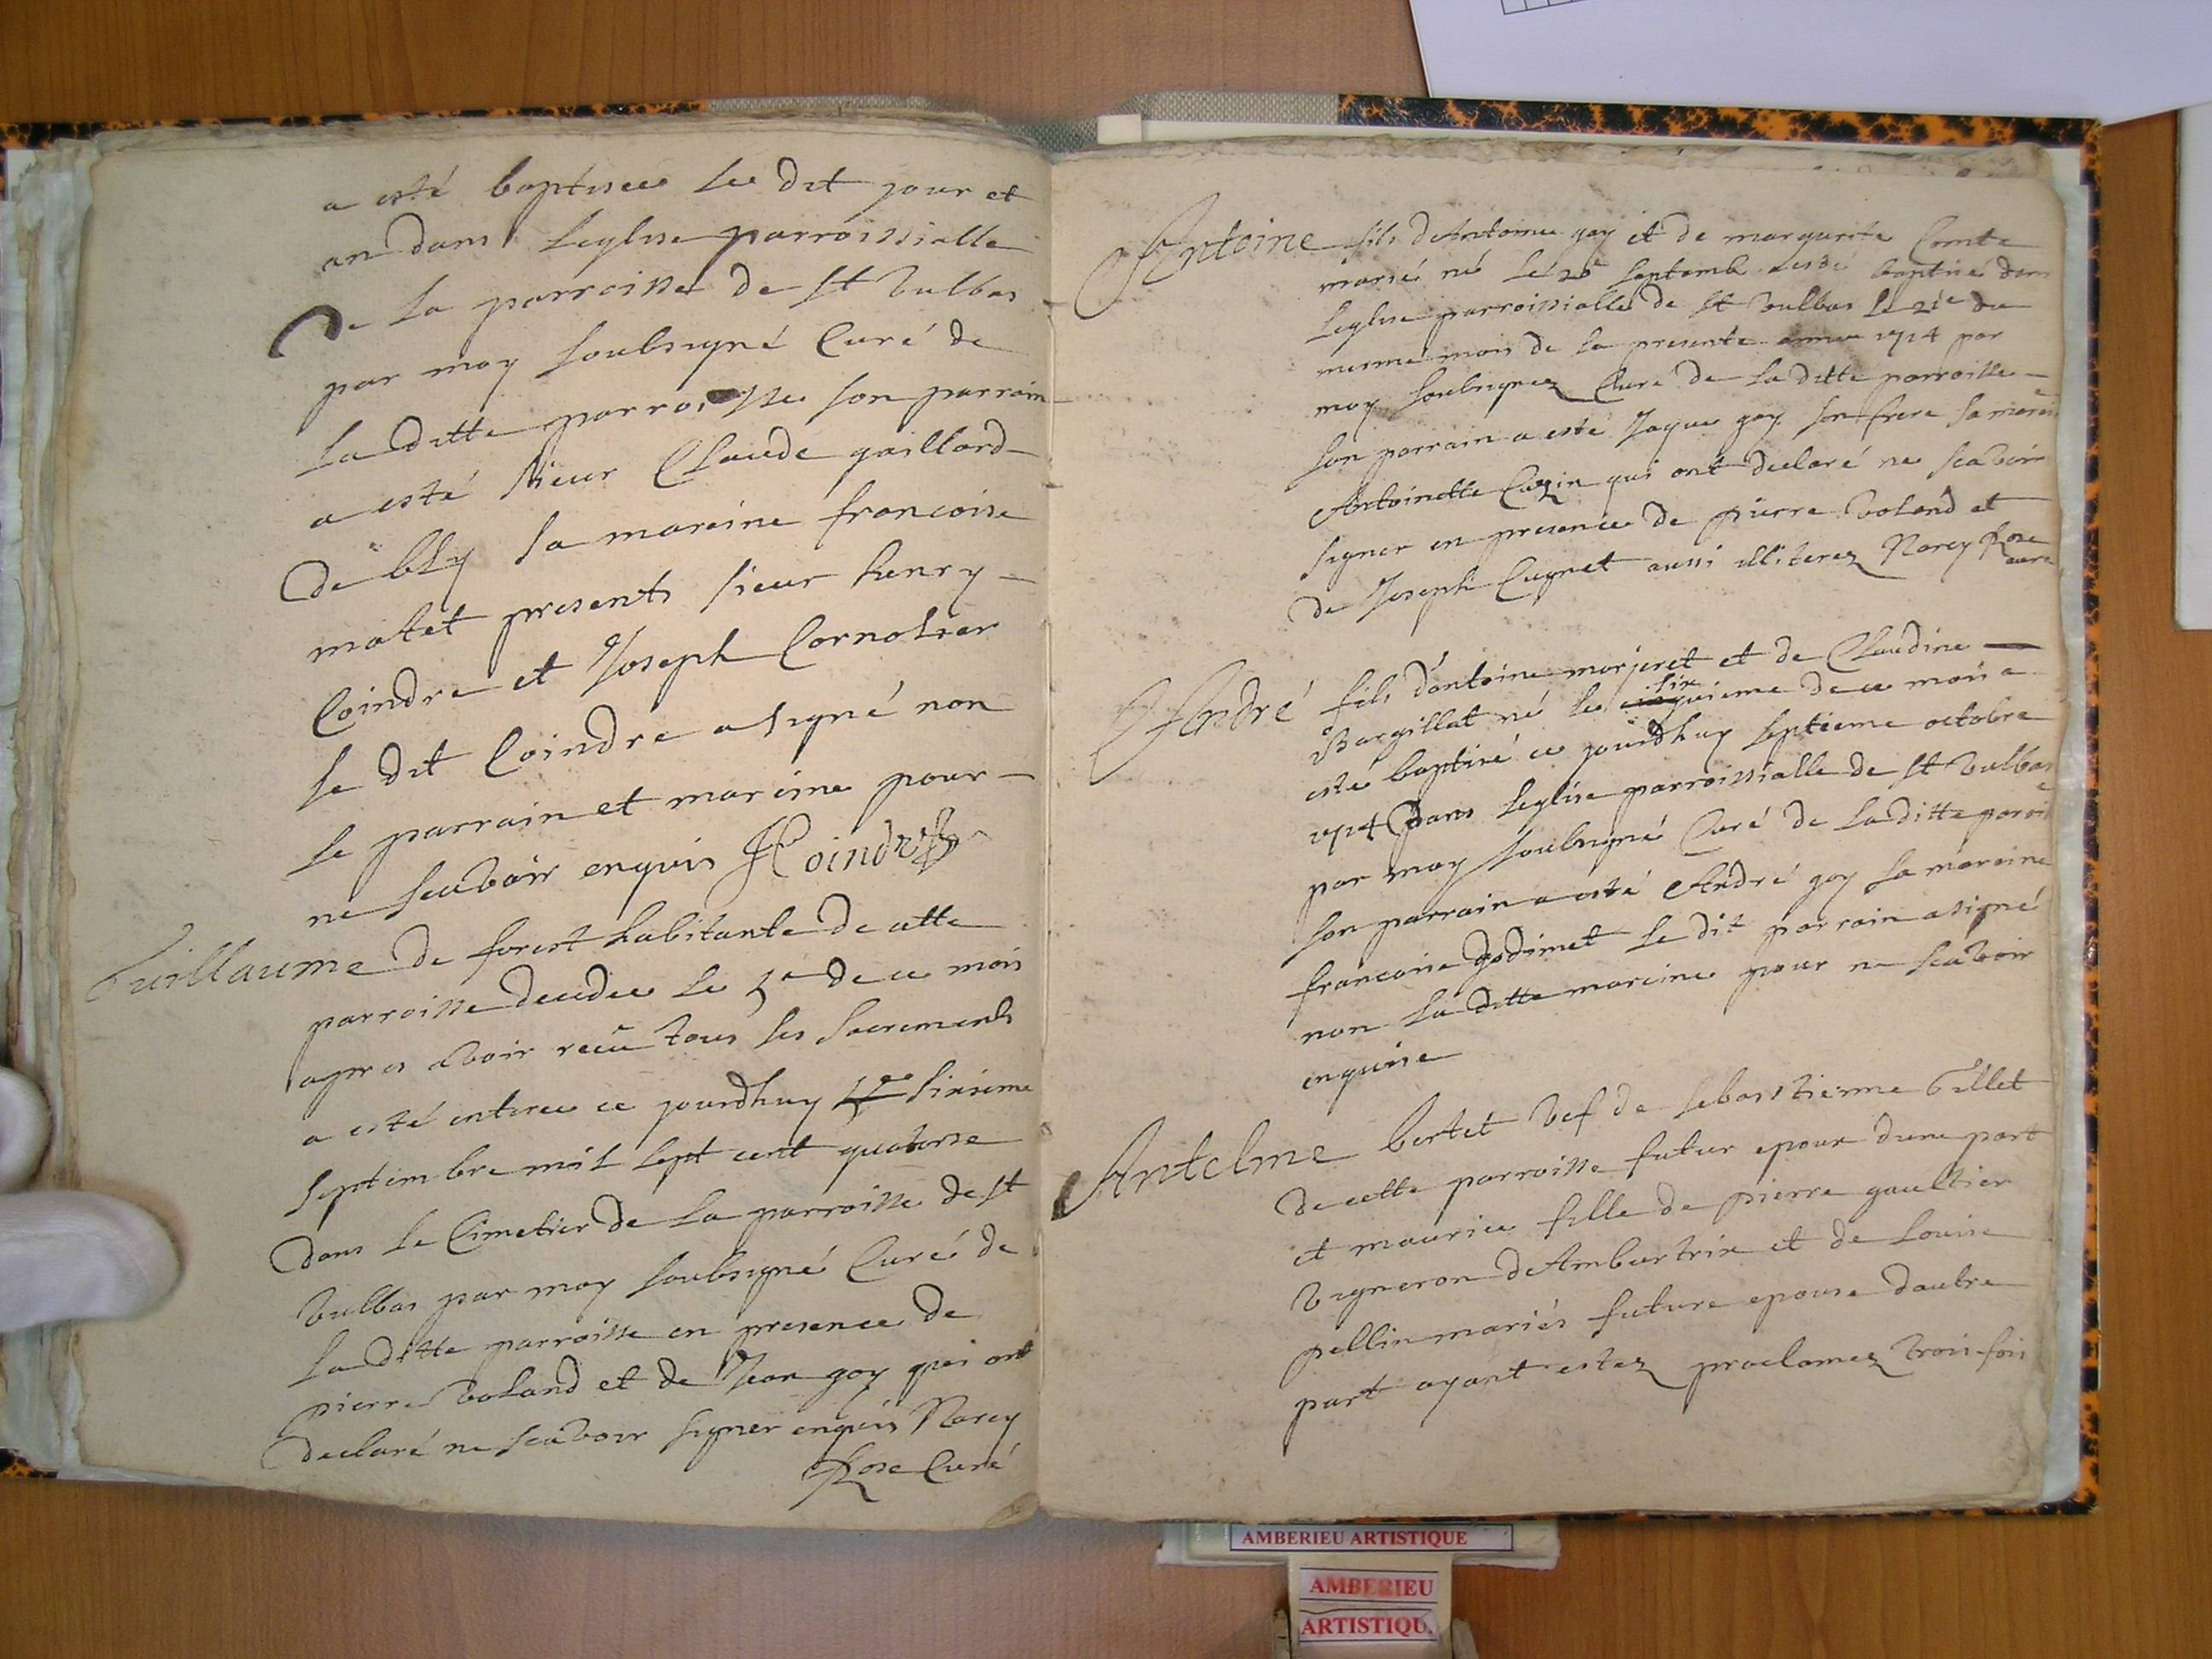 a esté baptisée le dit jour et
an dans leglise parroissialle
de la parroisse de st Vulbas
par moy soubsigné Curé de
la ditte parroisse son parrain
a esté sieur Claude gaillard
de bly sa mareine francoise
matet presents sieur henry
Coindre et Joseph Cornotier
le dit Coindre a signé non
le parrain et mareine pour
ne scavoir enquis HCoindre
Guillaume de forest habitante de cette
parroisse decedée le 5e de ce mois
apres avoir receu tous les sacrements
a esté enteree ce jourdhuy 5e sixieme
septembre mil sept cent quatorse
dans le Cimetier de la parroisse de st
Vulbas par moy soubsigné Curé de
la ditte parroisse en presence de
pierre Voland et de Jean goy qui ont
declaré ne scavoir signer enquis Narcy
Rose Curé
Antoine fils d'Antoine goy et de marguerite Comte
mariés né le 20e septemb. a esté baptisé dans
leglise parroissialle de st Vulbas le 21e du
mesme mois de la presente année 1714 par
moy soubsignez Curé de la ditte parroisse
son parrain a esté Jaque goy son frere sa marein
Antoinette Cuzin qui ont declaré ne scavoir
signer en presence de pierre Voland et
de Joseph Cugnet aussi illiterez Narcy Rose
curé
André fils d'antoine marjeret et de Claudine
six
Bargillat né le cinquieme de ce mois a
esté baptisé ce jourdhuy septieme octobre
1714 dans leglise parroissialle de st Vulbas
par moy soubsigné Curé de la ditte parois
son parrain a esté André goy sa mareine
francoise godimet le dit parrain a signé
non la ditte mareine pour ne scavoir
enquise
Antelme bertet Vef de sebasstienne Gillet
de cette parroisse futur epoux dune part
et maurice fille de pierre gaultier
Vigneron d'Ambutrix et de Louise
pellin mariés future epouse dautre
part ayant estez proclamez trois fois
AMBERIEU ARTISTIQUE
AMBERIEU
ARTISTIQU